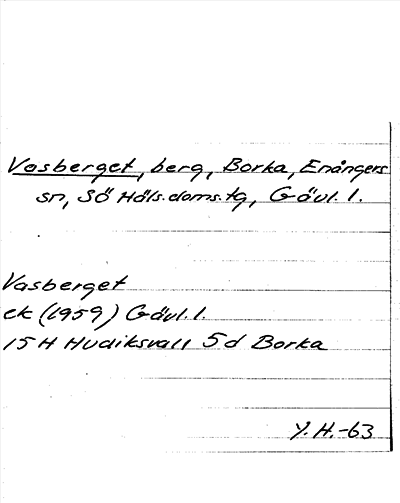 Vasberget, berg, Borka, Enångers
sn, Sö Häls. doms. tg, Gävl. l.
Vasberget
ek (1959) Gävl. l.
15 H Hudiksvall 5d Borka
Y. H. -63